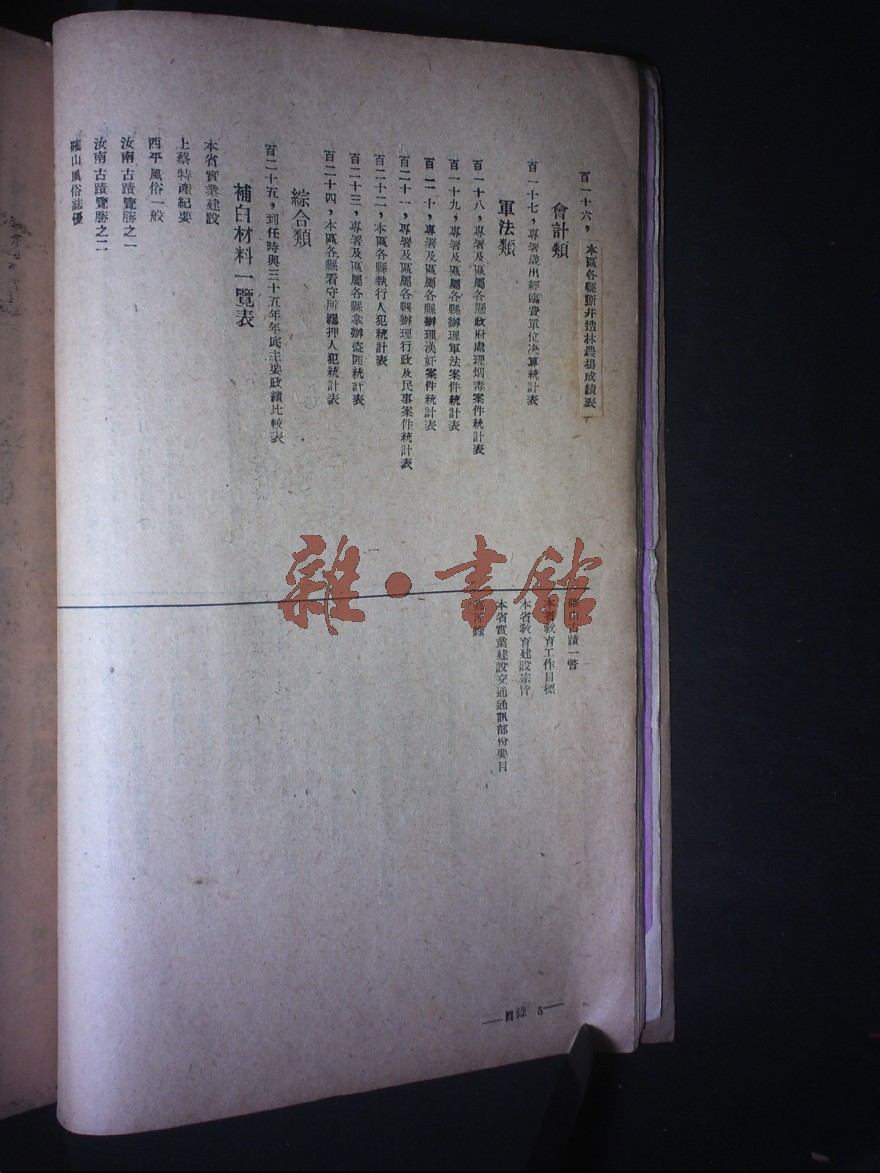 百一十六，本區各縣鑿井造林農場成績表
會計類
百一十七，專署歲出經臨費單位決算統計表
軍法類
百一十八，專署及區屬各縣政府處理烟毒案件統計表
百一十九，專署及區屬各縣辦理軍法案件統計表
百二十，專署及區屬各縣辦理漢奸案件統計表
百二十一，專署及區屬各縣辦理行政及民事案件統計表
百二十二，本區各縣執行人犯統計表
百二十三，專署及區屬各縣拿辦盜匪統計表
百二十四，本區各縣看守所羈押人犯統計表
綜合類
百二十五，到任時與三十五年年底主要政績比較表
補白材料一覽表
本省實業建設
上蔡特產紀要
西平風俗一般
汝南古蹟覽勝之一
汝南古蹟覽勝之二
確山風俗誌優
確山古蹟一瞥
本省教育工作目標
本省教育建設宗旨
本省實業建設交通通訊部份要目
錄
雜·書館
目錄 5